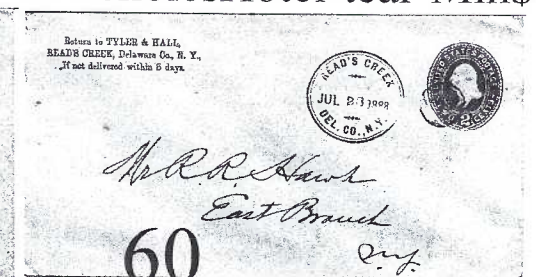 Return to TYLER & HALL,
READ'S CREEK, Delaware Co., N. Y.,
If not delivered within 5 days.
READ'S CREEK
JUL 23 1888
DEL. CO., N.Y.
UNITED STATES POSTAGE
2
Mr R. R. Hawk
East Branch
N.Y.
60